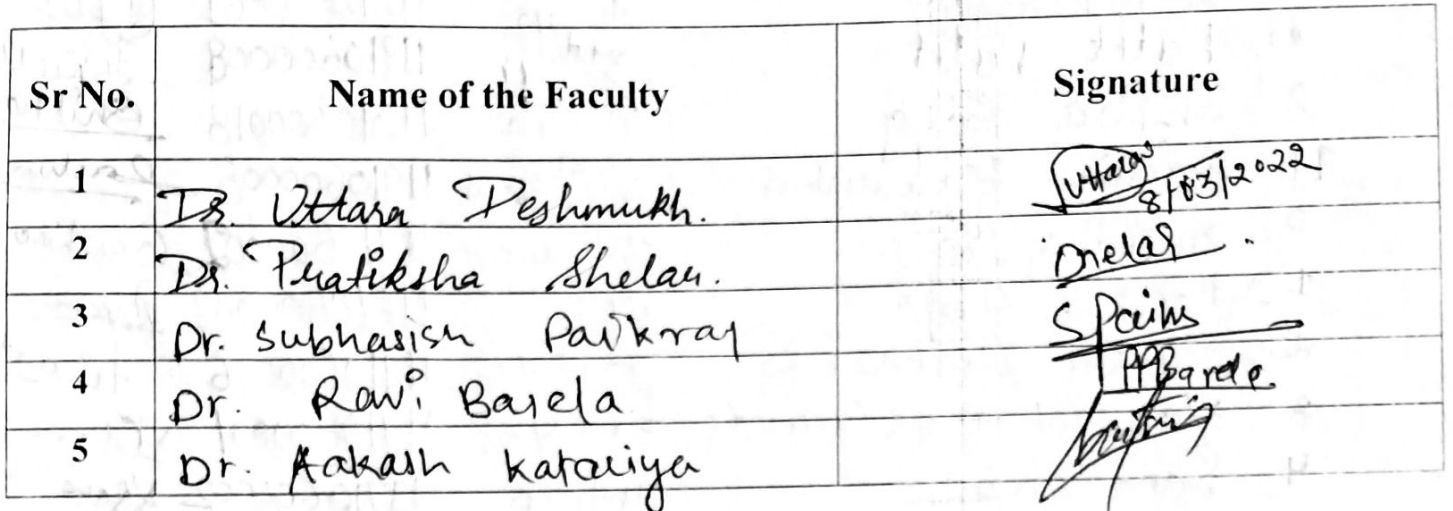 Sr No. Name of the Faculty Signature
1 Dr. Uttara Deshmukh. Uttara 8/03/2022
2 Dr. Pratiksha Shelar.
3 Dr. Subhasish Paikray
4 Dr. Ravi Barela Barela
5 Dr. Aakash Katariya